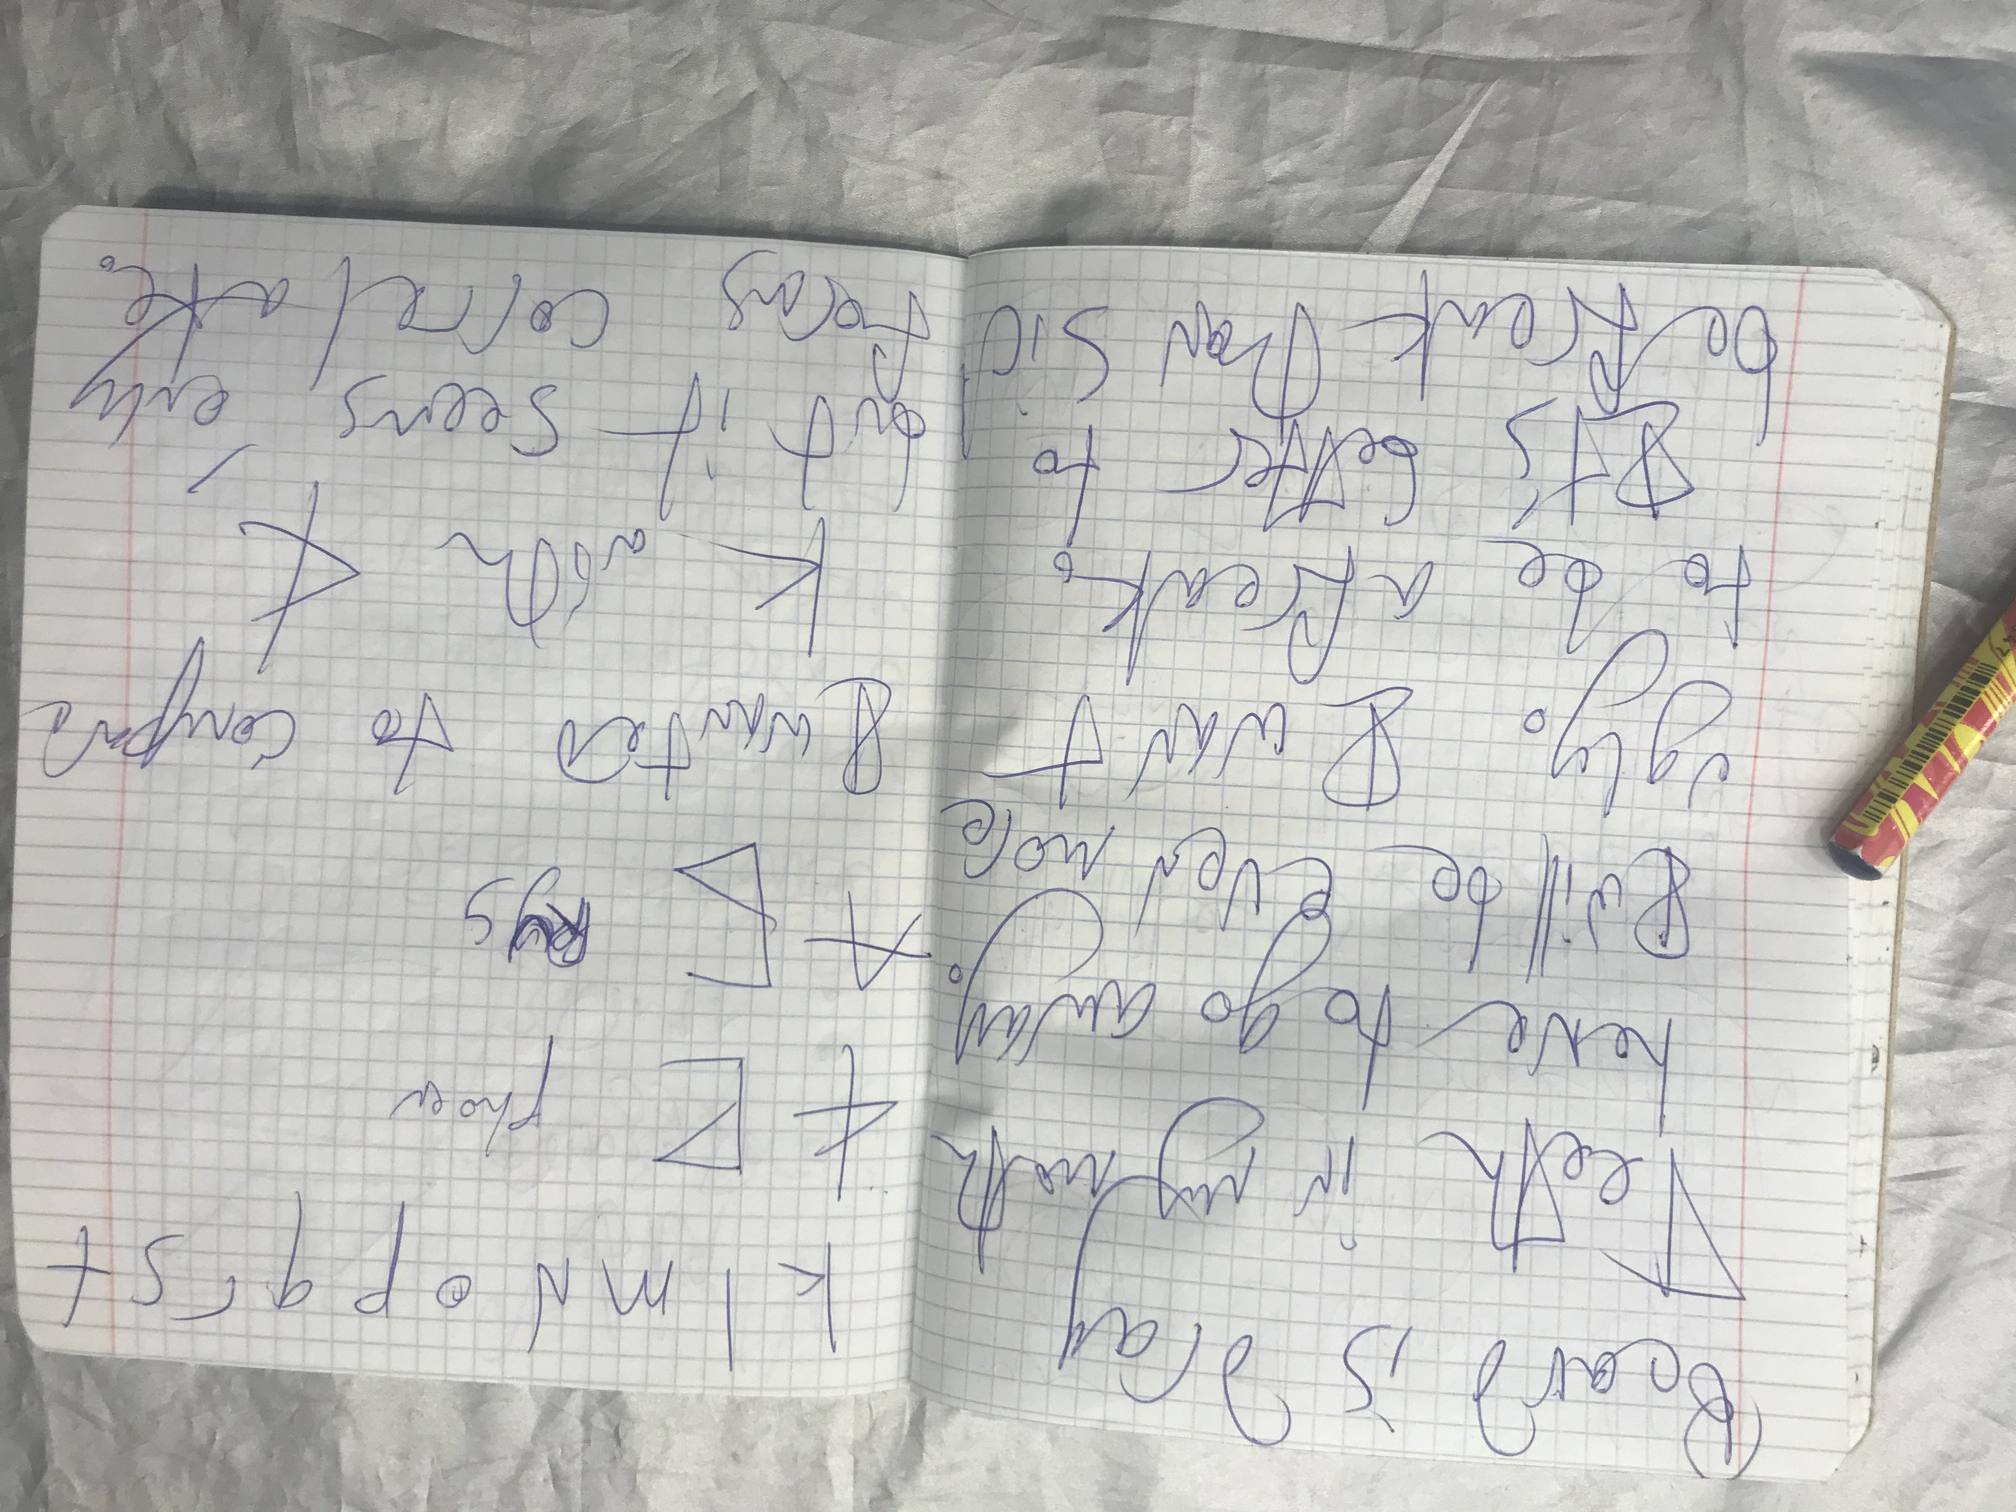 Beard is gray
Teeth in my moth
heve to go away.
I will be even more
ugly. I want
to be a freak.
It's better to
be freak than sic
k l m N o p q r s t
I wanted to compare
k with f
but it seems, only
correlate.